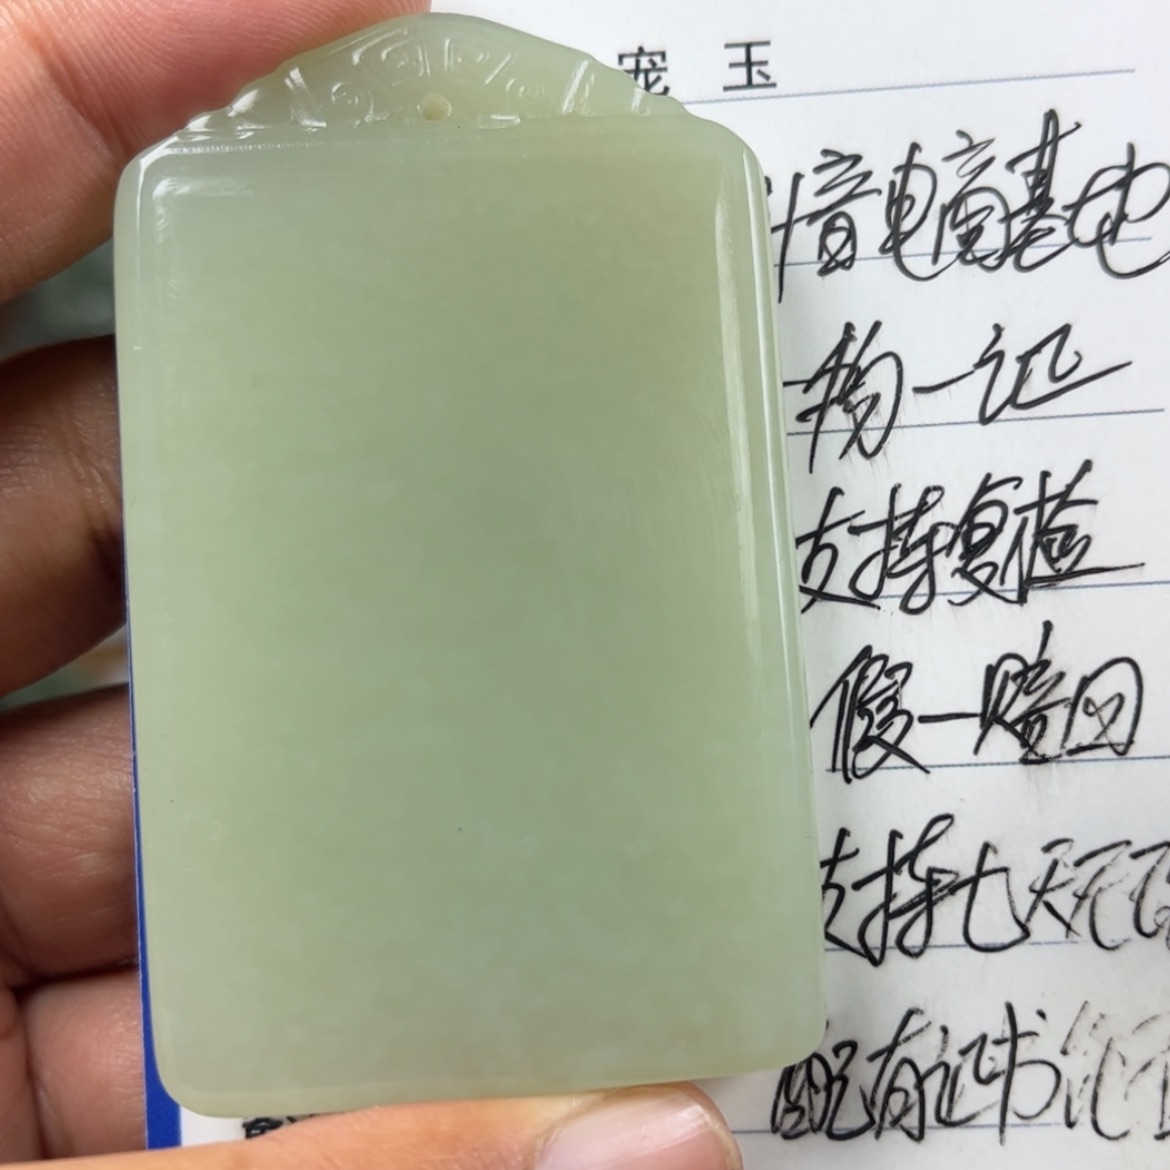 宠 玉
抖音电商基地
物一证
支持复检
假一赔四
支持七天无
配有证书